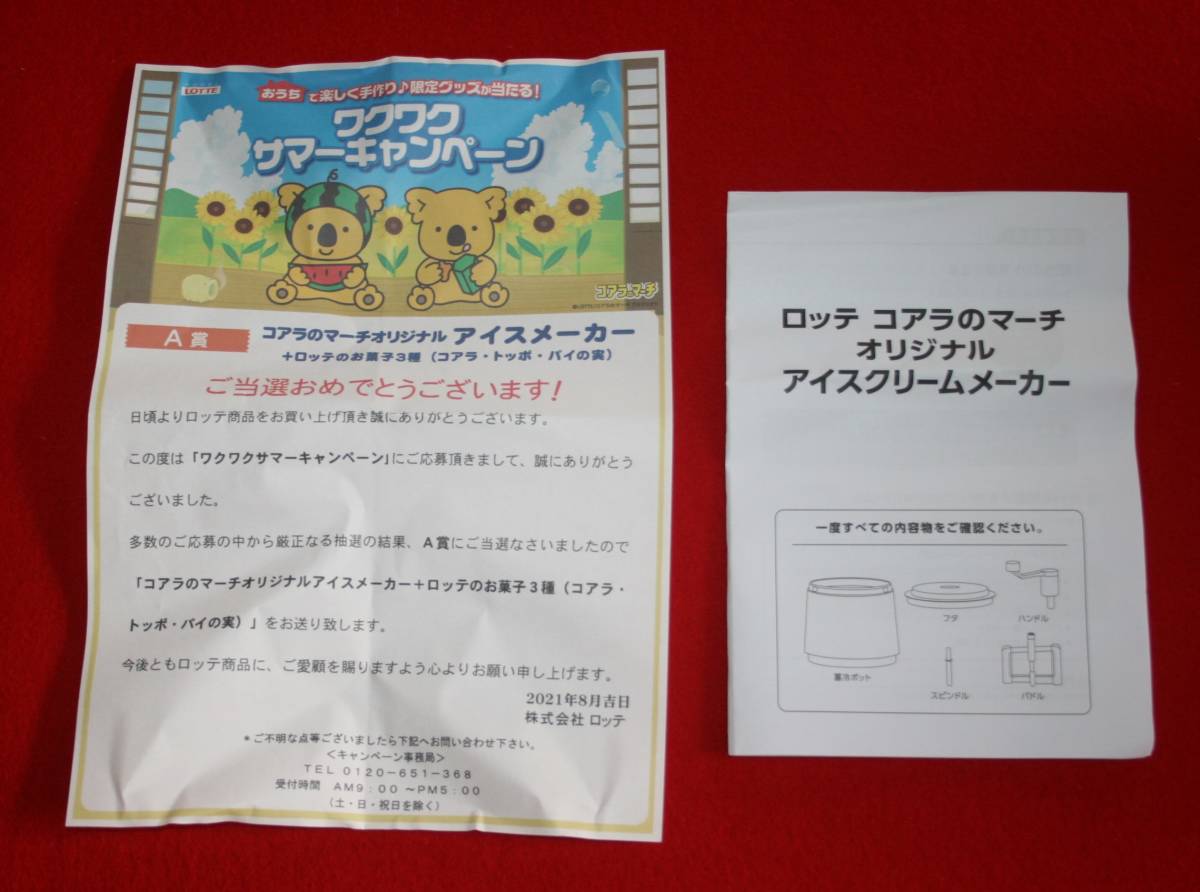 LOTTE
おうちで楽しく手作り♪限定グッズが当たる!
ワクワク
サマーキャンペーン
コアラのマーチ
A賞
コアラのマーチオリジナル アイスメーカー
+ロッテのお菓子3種（コアラ・トッポ・パイの実）
ご当選おめでとうございます!
日頃よりロッテ商品をお買い上げ頂き誠にありがとうございます。
この度は「ワクワクサマーキャンペーン」にご応募頂きまして、誠にありがとう
ございました。
多数のご応募の中から厳正なる抽選の結果、A賞にご当選なさいましたので
「コアラのマーチオリジナルアイスメーカー+ロッテのお菓子3種（コアラ・
トッポ・パイの実）」をお送り致します。
今後ともロッテ商品に、ご愛顧を賜りますよう心よりお願い申し上げます。
2021年8月吉日
株式会社 ロッテ
*ご不明な点等ございましたら下記へお問い合わせ下さい。
<キャンペーン事務局>
TEL 0120-651-368
受付時間 AM9:00 〜PM5:00
（土・日・祝日を除く）
ロッテ コアラのマーチ
オリジナル
アイスクリームメーカー
一度すべての内容物をご確認ください。
フタ
ハンドル
蓄冷ポット
スピンドル
パドル